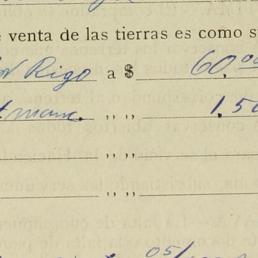 e venta de las tierras es como s
Rigo a $ 60.00
" " 1.50
" "
" "
05/